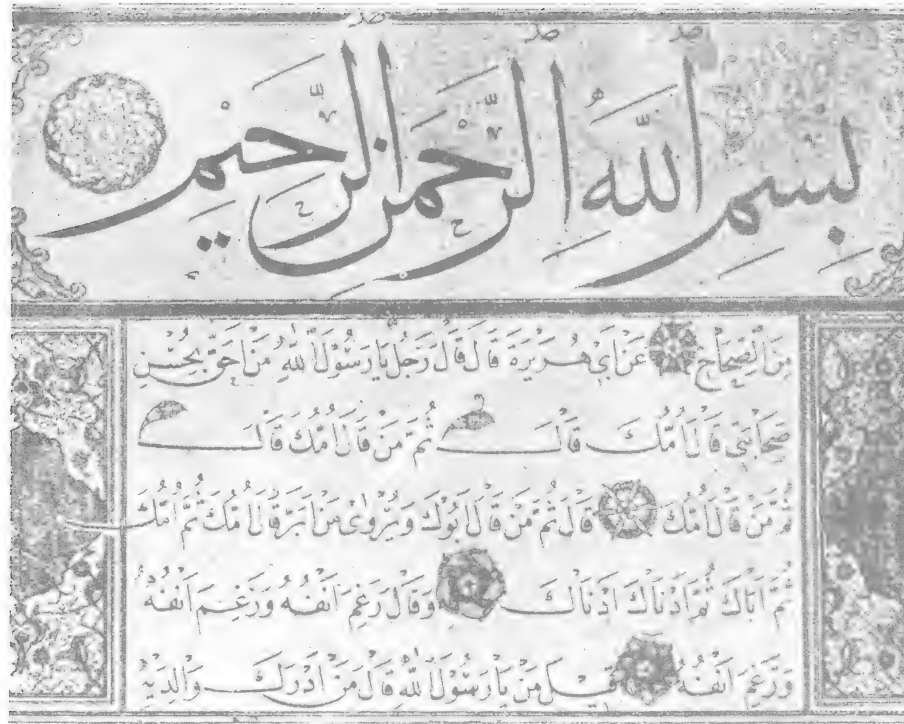 بِسْمِ اللّٰهِ الرَّحْمٰنِ الرَّحِيْمِ
مِنَ الصِّحَاحِ عَنْ اَبِي هُرَيْرَةَ قَالَ قَالَ رَجُلٌ يَا رَسُوْلَ اللّٰهِ مَنْ اَحَقُّ بِحُسْنِ
صَحَابَتِي قَالَ اُمُّكَ قَالَ ثُمَّ مَنْ قَالَ اُمُّكَ قَالَ
ثُمَّ مَنْ قَالَ اُمُّكَ قَالَ ثُمَّ مَنْ قَالَ اَبُوْكَ وَيُرْوٰى مَنْ اَبَرُّ قَالَ اُمَّكَ ثُمَّ اُمَّكَ
ثُمَّ اَبَاكَ ثُمَّ اَدْنَاكَ اَدْنَاكَ وَقَالَ رَغِمَ اَنْفُهُ وَرَغِمَ اَنْفُهُ
وَرَغِمَ اَنْفُهُ قِيْلَ مَنْ يَا رَسُوْلَ اللّٰهِ قَالَ مَنْ اَدْرَكَ وَالِدَيْهِ